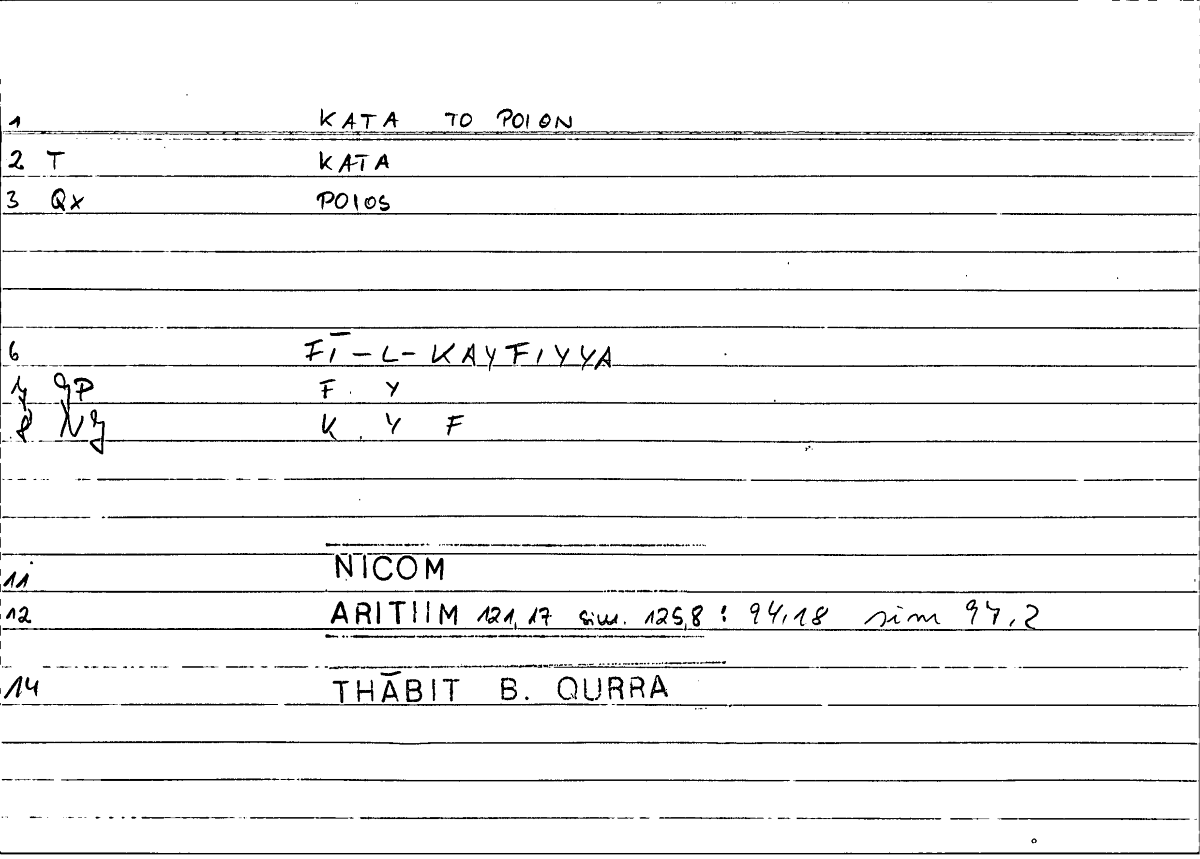 1 KATA TO POION
2 T KATA
3 Qx POIOS
6 FĪ-L-KAYFIYYA
7 gP F. Y
8 Ng K. Y F
11 NICOM
12 ARITIIM 121,17 sim. 125,8 : 94,18 sim 97,2
14 THĀBIT B. QURRA